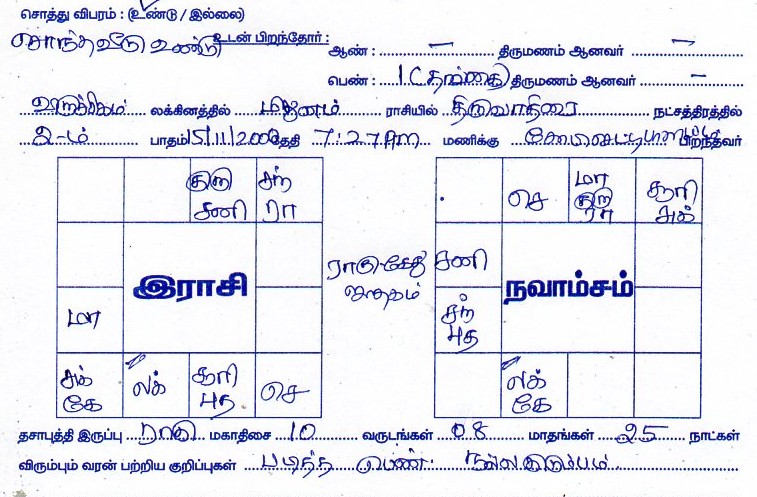 சொத்து விபரம் : (உண்டு / இல்லை)
சொந்தவீடு உண்டு உடன் பிறந்தோர் : ஆண் : – திருமணம் ஆனவர் –
பெண் : 1 (தங்கை) திருமணம் ஆனவர் –
விருச்சிகம் லக்கினத்தில் மிதுனம் ராசியில் திருவாதிரை நட்சத்திரத்தில்
2-ம் பாதம் 15/11/2000 தேதி 7:27 AM மணிக்கு பிறந்தவர்
குரு சனி
சந் ரா
செ
மா குரு ரா
சூரி சுக்
இராசி
ராகு கேது ஜாதகம்
சனி
நவாம்சம்
மா
சந் புத
சுக் கே
லக்
சூரி புத
செ
லக் கே
தசாபுத்தி இருப்பு ராகு மகாதிசை 10 வருடங்கள் 08 மாதங்கள் 25 நாட்கள்
விரும்பும் வரன் பற்றிய குறிப்புகள் படித்த பெண். நல்ல குடும்பம்